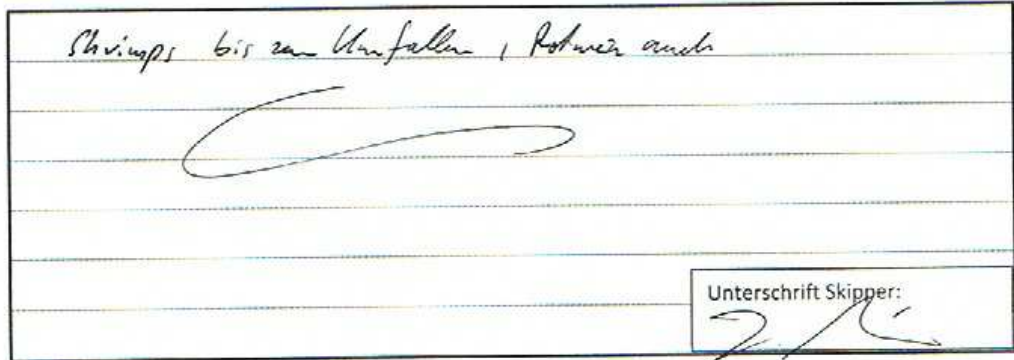 Shrimps bis zum Umfallen, Rotwein auch
Unterschrift Skipper: